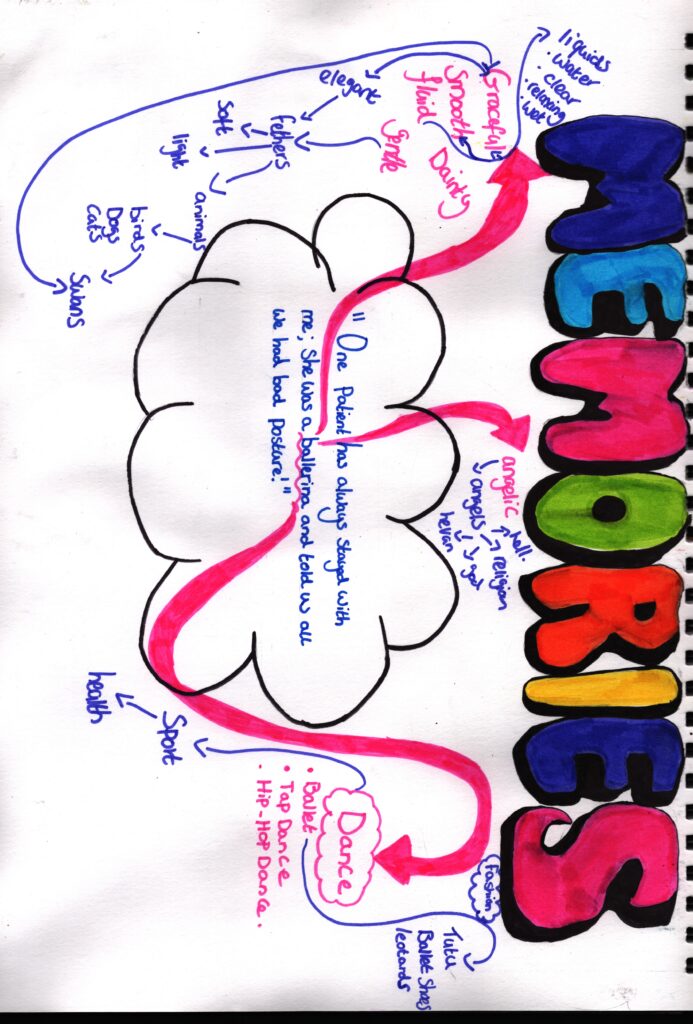 MEMORIES
liquids
· water
· clear
· relaxing
· wet
Graceful
Smooth
fluid
Dainty
gentle
elegant
fethers
Soft
light
animals
birds
Dogs
cats
Swans
angelic
angels
hell.
religion
god
hevan
"One patient has always stayed with
me; She was a ballerina and told us all
we had bad posture!"
fashion
Tutu
Ballet Shoes
leotards
Dance
• Ballet
• Tap Dance
• Hip-Hop Dance.
Sport
health